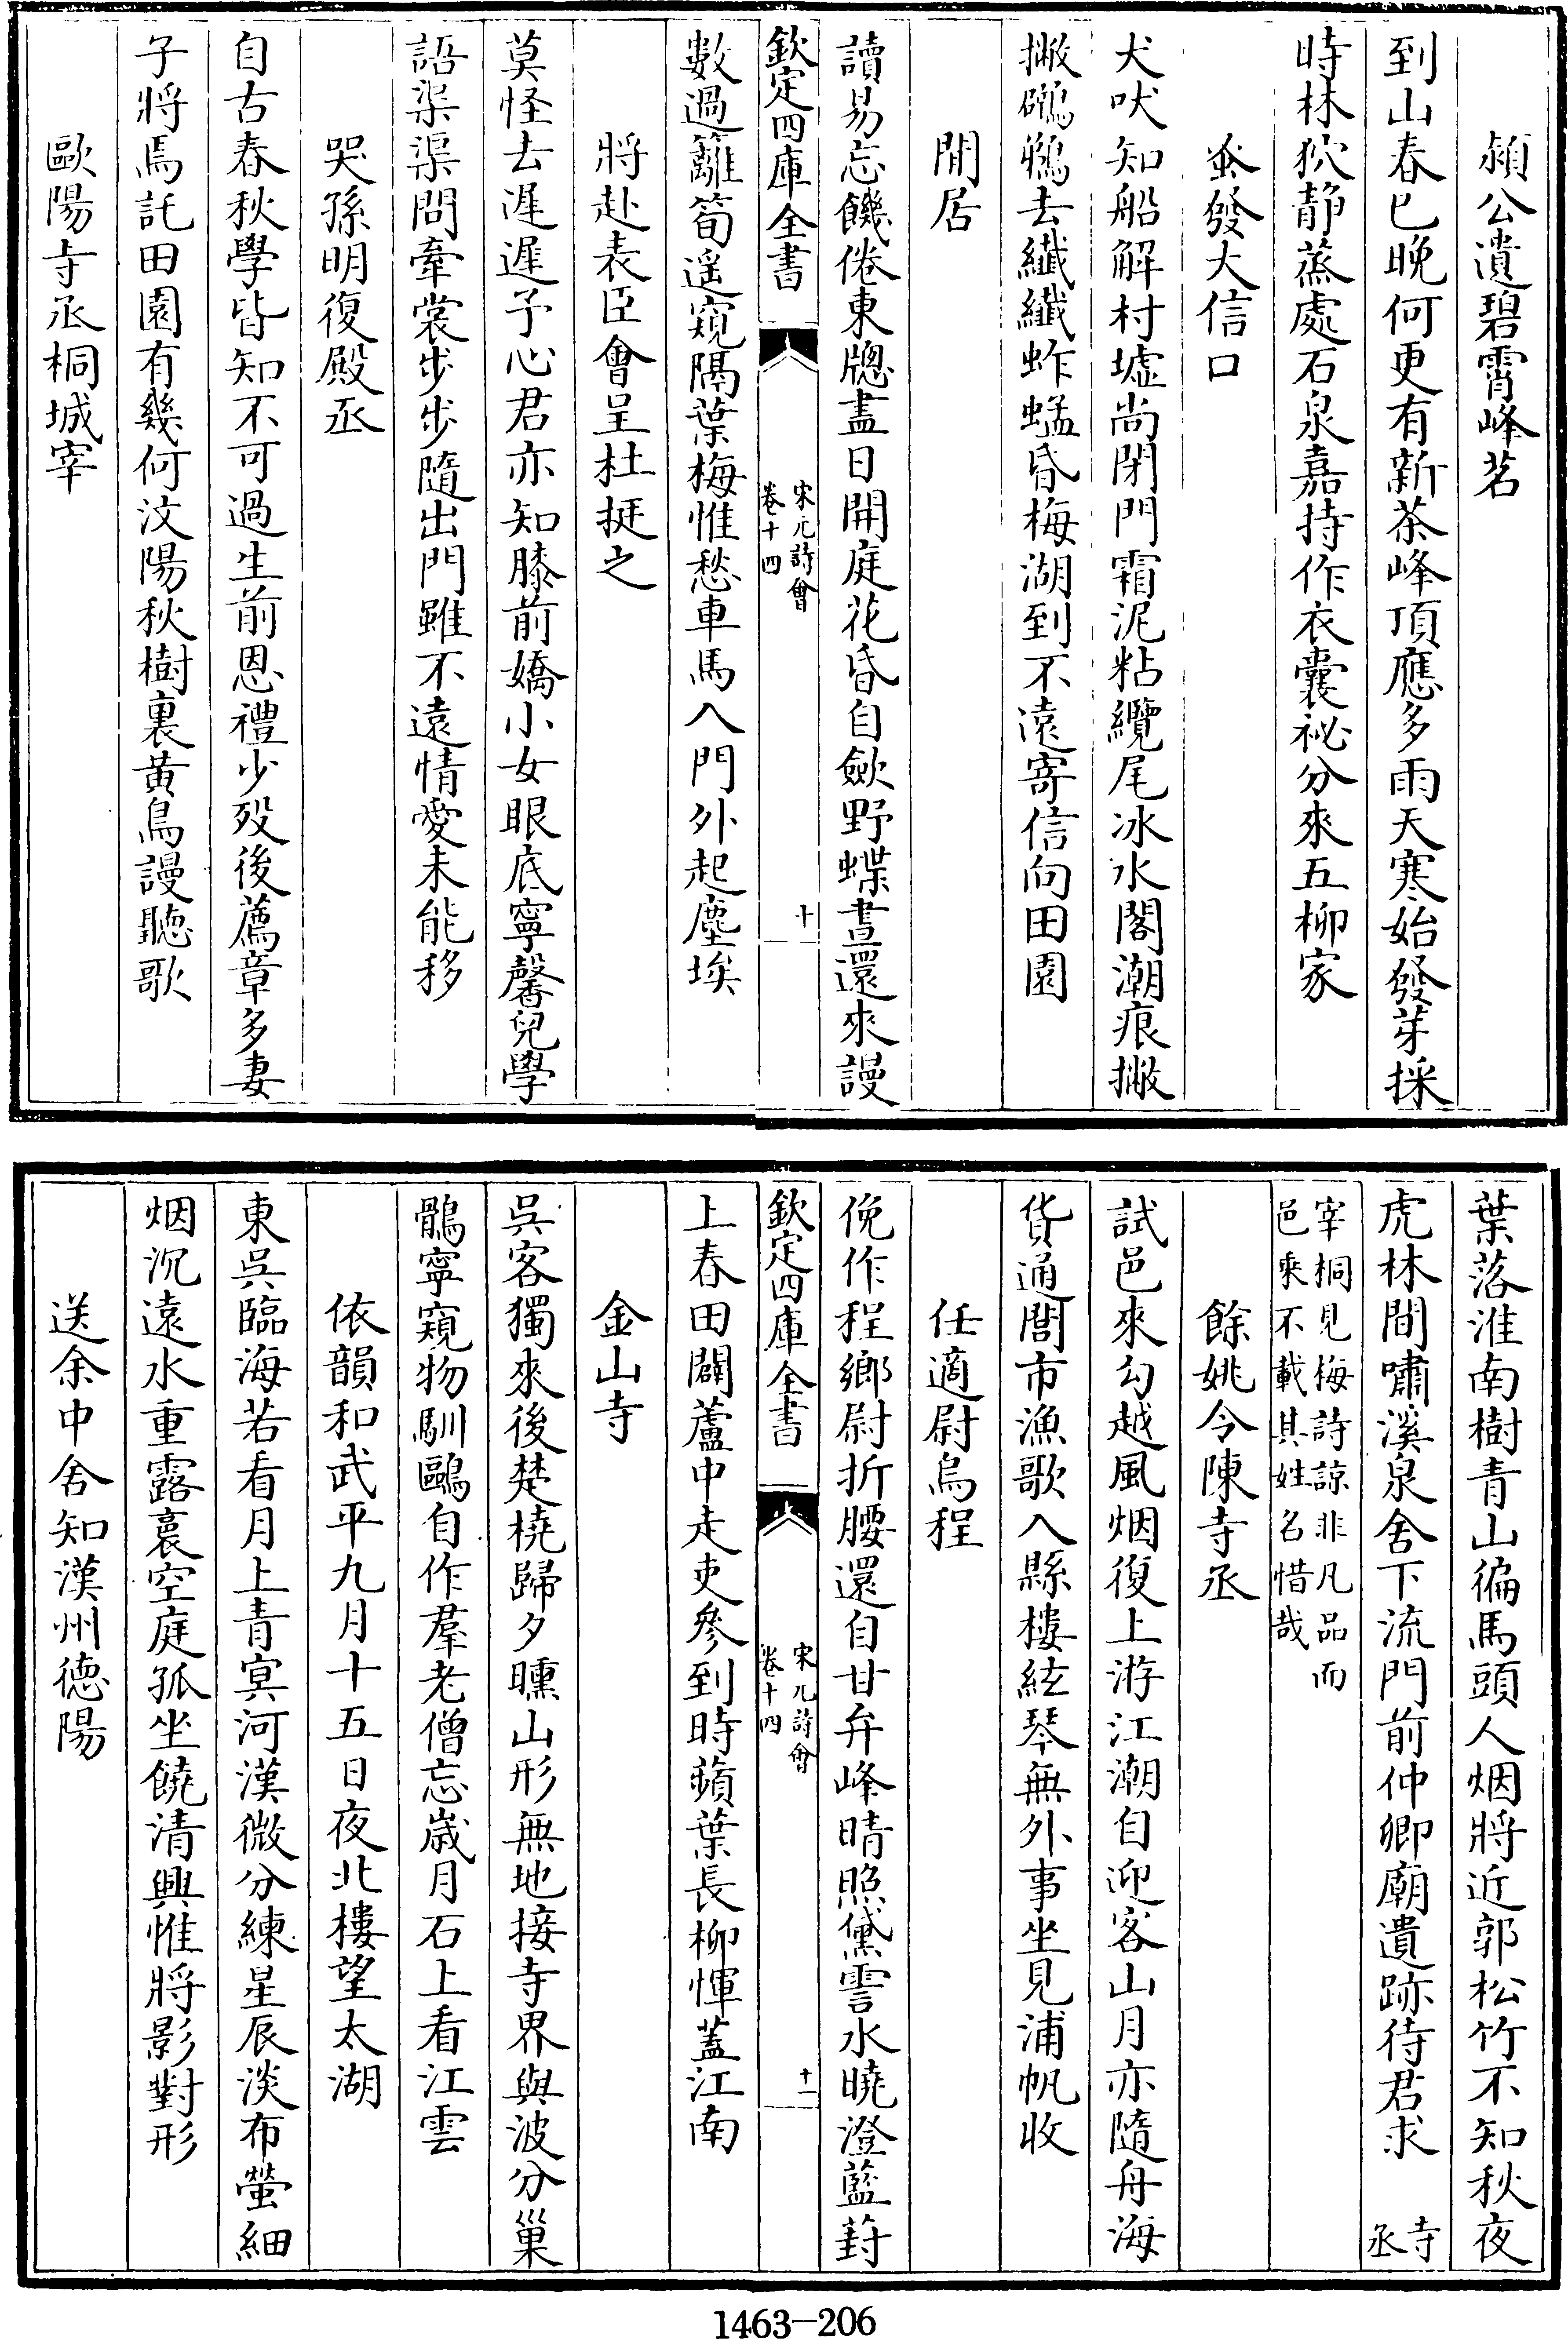 頴公遺碧霄峰茗
到山春已晚何更有新茶峰頂應多雨天寒始發芽採
時林狖静蒸處石泉嘉持作衣囊祕分來五柳家
蚤發大信口
犬吠知船解村墟尚閉門霜泥粘纜尾冰水閣潮痕撇
撇鸂鶒去纎纎蚱蜢昏梅湖到不遠寄信向田園
閒居
讀易忘饑倦東牕盡日開庭花昏自歛野蝶晝還來謾
欽定四庫全書
宋元詩會
卷十四
十
數過籬筍遥窺隔葉梅惟愁車馬入門外起塵埃
將赴表臣會呈杜挺之
莫怪去遲遲予心君亦知膝前嬌小女眼底寧馨兒學
語渠渠問牽裳步步隨出門雖不遠情愛未能移
哭孫明復殿丞
自古春秋學皆知不可過生前恩禮少殁後薦章多妻
子將焉託田園有幾何汶陽秋樹裏黄鳥謾聽歌
歐陽寺丞桐城宰
葉落淮南樹青山徧馬頭人烟將近郭松竹不知秋夜
虎林間嘯溪泉舍下流門前仲卿廟遺跡待君求 寺丞
宰桐見梅詩諒非凡品而
邑乘不載其姓名惜哉
餘姚令陳寺丞
試邑來勾越風烟復上游江潮自迎客山月亦隨舟海
貨通閭市漁歌入縣樓絃琴無外事坐見浦帆收
任適尉烏程
俛作程鄉尉折腰還自甘弁峰晴照黛霅水曉澄藍葑
欽定四庫全書
宋元詩會
卷十四
十一
上春田闢蘆中走吏參到時蘋葉長柳惲蓋江南
金山寺
吳客獨來後楚橈歸夕曛山形無地接寺界與波分巢
鶻寧窺物馴鷗自作羣老僧忘歲月石上看江雲
依韻和武平九月十五日夜北樓望太湖
東吳臨海若看月上青冥河漢微分練星辰淡布螢細
烟沉遠水重露裛空庭孤坐饒清興惟將影對形
送余中舍知漢州德陽
1463—206